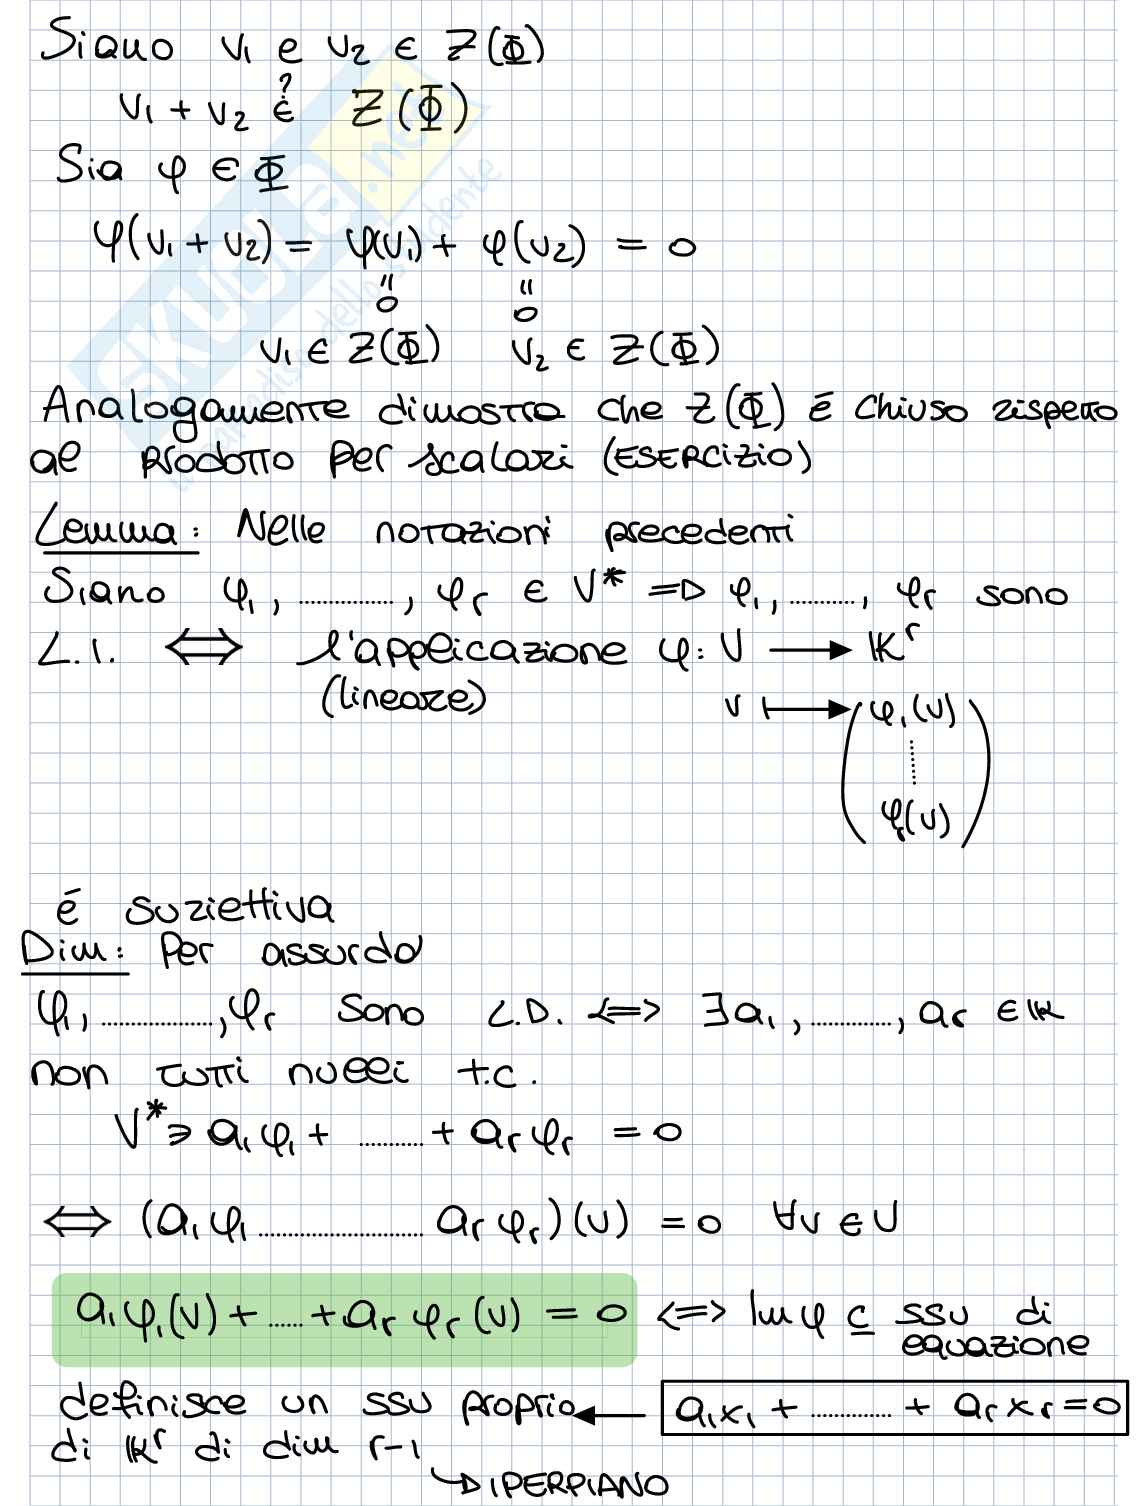 Siano v₁ e v₂ ∈ Z(Φ)
v₁ + v₂ ∈? Z(Φ)
Sia φ ∈ Φ
φ(v₁ + v₂) = φ(v₁) + φ(v₂) = 0
" "
0 0
v₁ ∈ Z(Φ) v₂ ∈ Z(Φ)
Analogamente dimostra che Z(Φ) é chiuso rispetto
al prodotto per scalari (ESERCIZIO)
Lemma: Nelle notazioni precedenti
Siano φ₁, ............, φr ∈ V* => φ₁, ........, φr sono
L.I. <=> l'applicazione φ: V → Kʳ
(lineare) v ↦ (φ₁(v)
.......
φr(v))
é suriettiva
Dim: Per assurdo
φ₁, ............, φr sono L.D. <=> ∃ a₁, ........, ar ∈ K
non tutti nulli t.c.
V* ∋ a₁φ₁ + ........ + arφr = 0
<=> (a₁φ₁ .................... arφr)(v) = 0 ∀v ∈ V
a₁φ₁(v) + ..... + arφr(v) = 0 <=> Im φ ⊆ ssv di
equazione
definisce un ssv proprio ← a₁x₁ + .......... + arxr = 0
di Kʳ di dim r-1
↳ IPERPIANO
SKUOLA.net